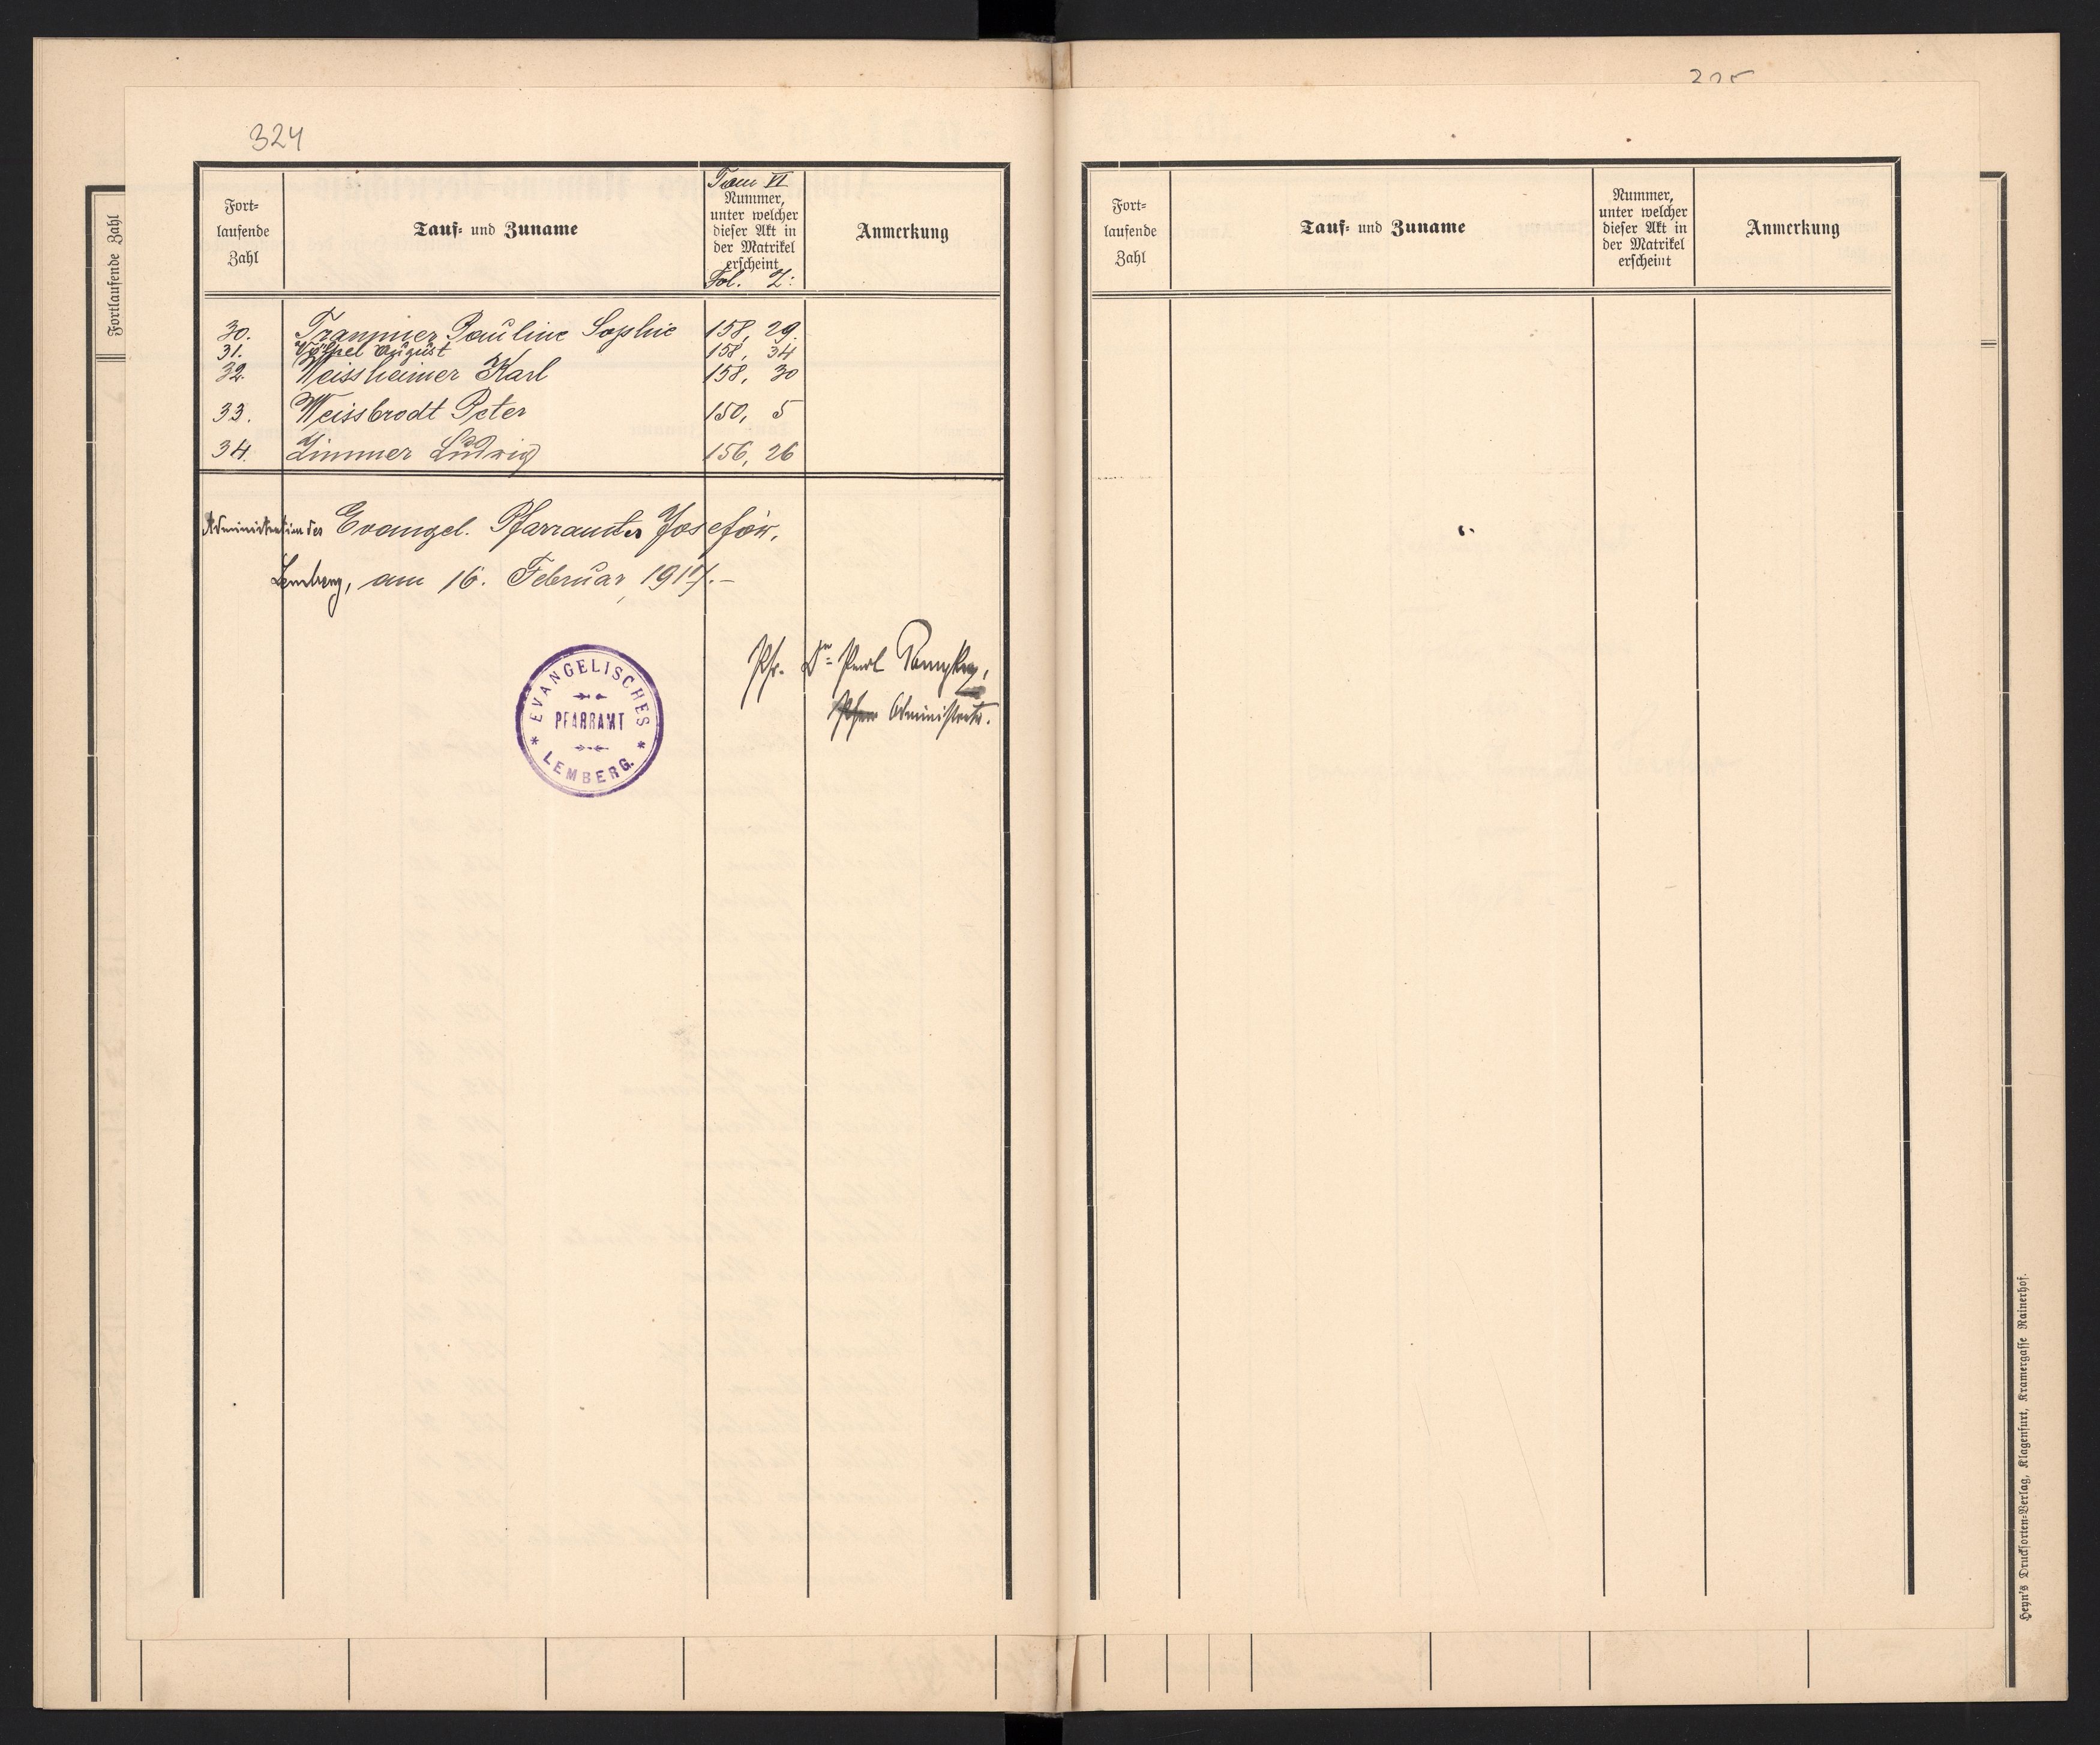 324
Fortlaufende Zahl
Fort-
laufende
Zahl
Tauf- und Zuname
Tom VI
Nummer,
unter welcher
dieser Akt in
der Matrikel
erscheint
Fol. Z:
Anmerkung
30. Trammer Pauline Sophie 158, 29.
31. Völpel August 158, 34
32. Weissheimer Karl 158, 30
33. Weissbrodt Peter 150, 5
34. Zimmer Ludwig 156, 26
Administration des Evangel. Pfarramtes Josefów,
Lemberg, am 16. Februar, 1917.-
Pfr. Dr. Paul
Administrator.
EVANGELISCHES
PFARRAMT
LEMBERG.
Fort-
laufende
Zahl
Tauf- und Zuname
Nummer,
unter welcher
dieser Akt in
der Matrikel
erscheint
Anmerkung
Heyn's Drucksorten-Verlag, Klagenfurt, Kramergasse Rainerhof.